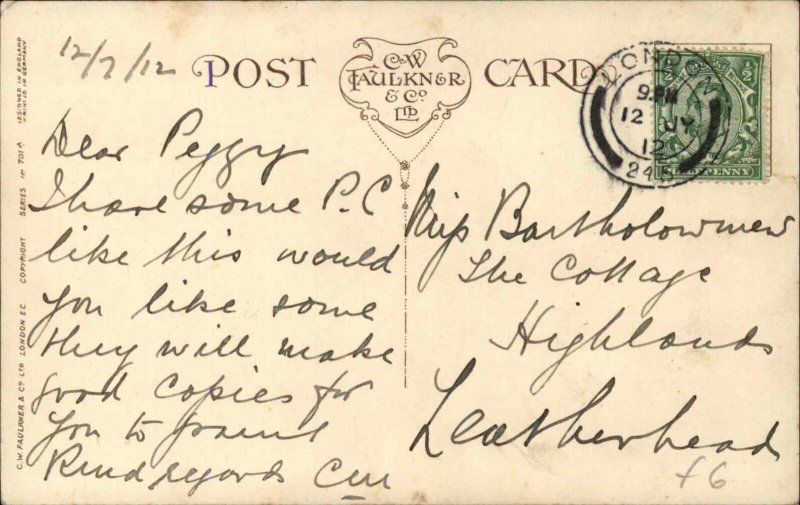 12/7/12
POST CARD
C.W.
FAULKNER
& Co.
LTD
LONDON
9. PM
12 JY
12
24
HALFPENNY
Dear Peggy
I have some P.C
like this would
you like some
they will make
good copies for
you to paint
Kind regards
Miss Bartholomew
The Cottage
Highlands
Leatherhead
£6
C.W. FAULKNER & CO LTD LONDON E.C. COPYRIGHT SERIES No 701 A
DESIGNED IN ENGLAND
PRINTED IN GERMANY